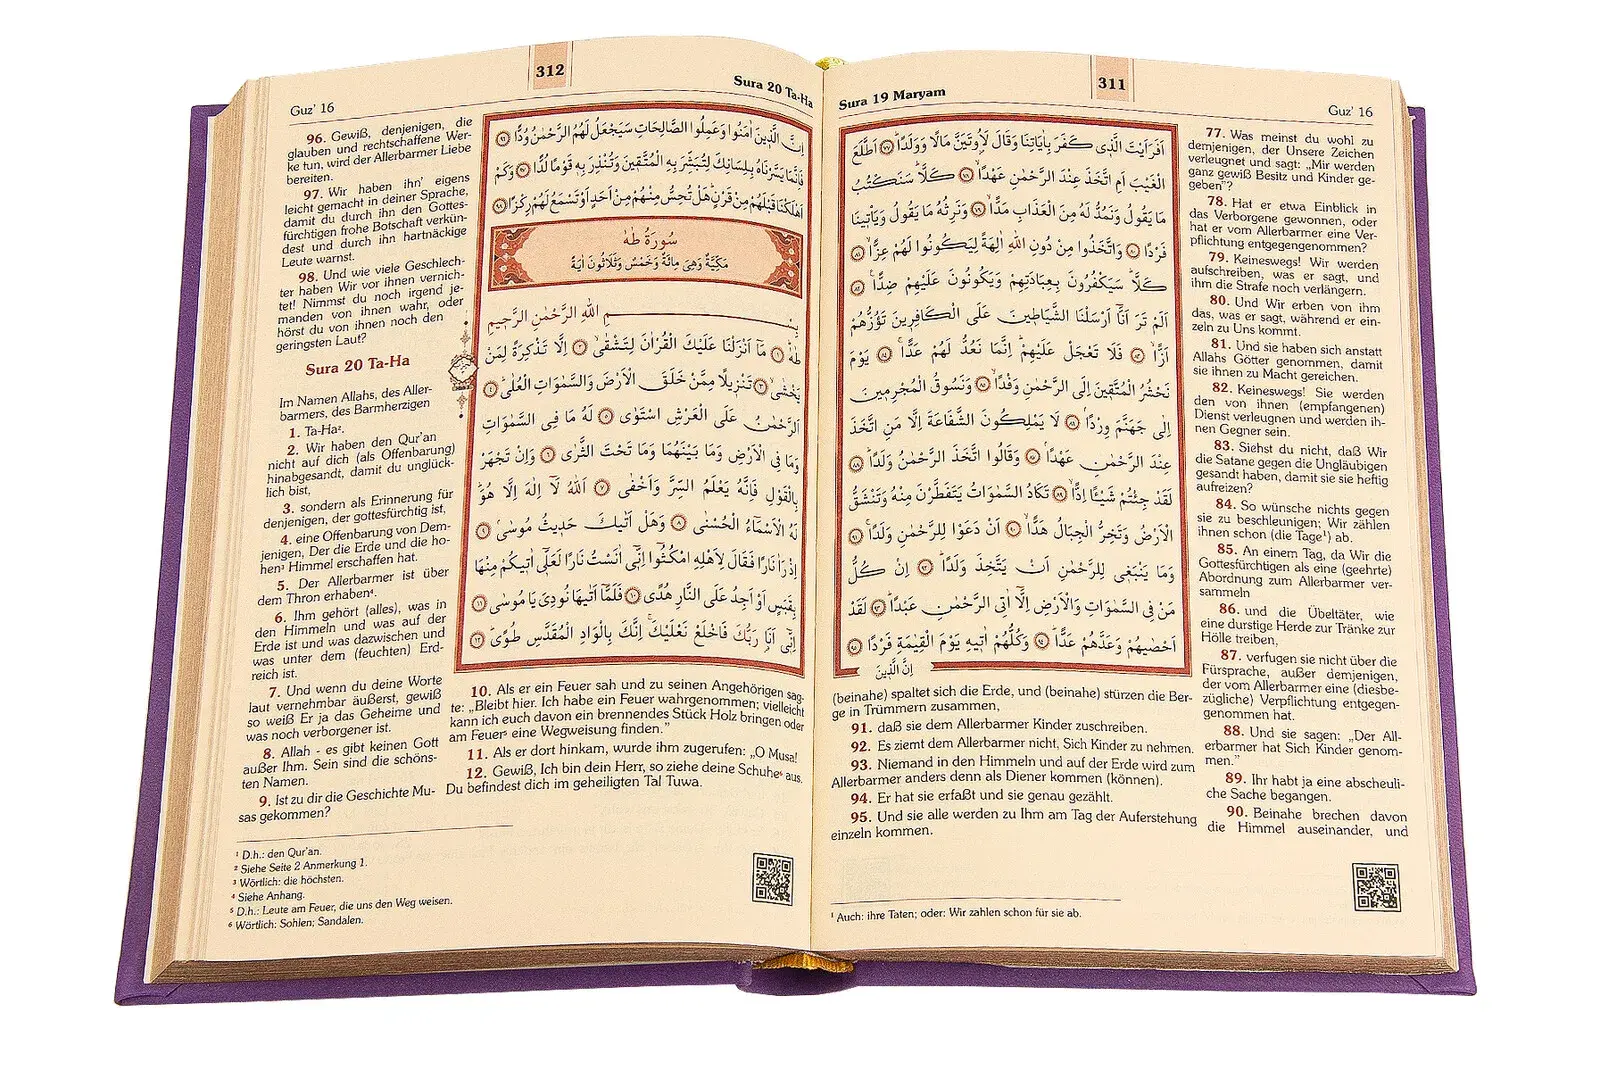 311
Sura 19 Maryam
Guz’ 16
اَفَرَاَيْتَ الَّذ۪ي كَفَرَ بِاٰيَاتِنَا وَقَالَ لَاُو۫تَيَنَّ مَالًا وَوَلَدًاۜ ﴿٧٧﴾ اَطَّلَعَ
الْغَيْبَ اَمِ اتَّخَذَ عِنْدَ الرَّحْمٰنِ عَهْدًاۙ ﴿٧٨﴾ كَلَّاۜ سَنَكْتُبُ
مَا يَقُولُ وَنَمُدُّ لَهُ مِنَ الْعَذَابِ مَدًّاۙ ﴿٧٩﴾ وَنَرِثُهُ مَا يَقُولُ وَيَأْت۪ينَا
فَرْدًا ﴿٨٠﴾ وَاتَّخَذُوا مِنْ دُونِ اللّٰهِ اٰلِهَةً لِيَكُونُوا لَهُمْ عِزًّاۙ ﴿٨١﴾
كَلَّاۜ سَيَكْفُرُونَ بِعِبَادَتِهِمْ وَيَكُونُونَ عَلَيْهِمْ ضِدًّا۟ ﴿٨٢﴾
اَلَمْ تَرَ اَنَّٓا اَرْسَلْنَا الشَّيَاط۪ينَ عَلَى الْكَافِر۪ينَ تَؤُزُّهُمْ
اَزًّاۙ ﴿٨٣﴾ فَلَا تَعْجَلْ عَلَيْهِمْۜ اِنَّمَا نَعُدُّ لَهُمْ عَدًّاۚ ﴿٨٤﴾ يَوْمَ
نَحْشُرُ الْمُتَّق۪ينَ اِلَى الرَّحْمٰنِ وَفْدًاۙ ﴿٨٥﴾ وَنَسُوقُ الْمُجْرِم۪ينَ
اِلٰى جَهَنَّمَ وِرْدًاۢ ﴿٨٦﴾ لَا يَمْلِكُونَ الشَّفَاعَةَ اِلَّا مَنِ اتَّخَذَ
عِنْدَ الرَّحْمٰنِ عَهْدًاۢ ﴿٨٧﴾ وَقَالُوا اتَّخَذَ الرَّحْمٰنُ وَلَدًاۜ ﴿٨٨﴾
لَقَدْ جِئْتُمْ شَيْـًٔا اِدًّاۙ ﴿٨٩﴾ تَكَادُ السَّمٰوَاتُ يَتَفَطَّرْنَ مِنْهُ وَتَنْشَقُّ
الْاَرْضُ وَتَخِرُّ الْجِبَالُ هَدًّاۙ ﴿٩٠﴾ اَنْ دَعَوْا لِلرَّحْمٰنِ وَلَدًاۚ ﴿٩١﴾
وَمَا يَنْبَغ۪ي لِلرَّحْمٰنِ اَنْ يَتَّخِذَ وَلَدًاۜ ﴿٩٢﴾ اِنْ كُلُّ
مَنْ فِي السَّمٰوَاتِ وَالْاَرْضِ اِلَّٓا اٰتِي الرَّحْمٰنِ عَبْدًاۜ ﴿٩٣﴾ لَقَدْ
اَحْصٰيهُمْ وَعَدَّهُمْ عَدًّاۜ ﴿٩٤﴾ وَكُلُّهُمْ اٰت۪يهِ يَوْمَ الْقِيٰمَةِ فَرْدًا ﴿٩٥﴾
اِنَّ الَّذ۪ينَ
77. Was meinst du wohl zu
demjenigen, der Unsere Zeichen
verleugnet und sagt: „Mir werden
ganz gewiß Besitz und Kinder ge-
geben”?
78. Hat er etwa Einblick in
das Verborgene gewonnen, oder
hat er vom Allerbarmer eine Ver-
pflichtung entgegengenommen?
79. Keineswegs! Wir werden
aufschreiben, was er sagt, und
ihm die Strafe noch verlängern.
80. Und Wir erben von ihm
das, was er sagt, während er ein-
zeln zu Uns kommt.
81. Und sie haben sich anstatt
Allahs Götter genommen, damit
sie ihnen zu Macht gereichen.
82. Keineswegs! Sie werden
den von ihnen (empfangenen)
Dienst verleugnen und werden ih-
nen Gegner sein.
83. Siehst du nicht, daß Wir
die Satane gegen die Ungläubigen
gesandt haben, damit sie sie heftig
aufreizen?
84. So wünsche nichts gegen
sie zu beschleunigen; Wir zählen
ihnen schon (die Tage¹) ab.
85. An einem Tag, da Wir die
Gottesfürchtigen als eine (geehrte)
Abordnung zum Allerbarmer ver-
sammeln
86. und die Übeltäter, wie
eine durstige Herde zur Tränke zur
Hölle treiben,
87. verfugen sie nicht über die
Fürsprache, außer demjenigen,
der vom Allerbarmer eine (diesbe-
zügliche) Verpflichtung entgegen-
genommen hat.
88. Und sie sagen: „Der All-
erbarmer hat Sich Kinder genom-
men.”
89. Ihr habt ja eine abscheuli-
che Sache begangen.
90. Beinahe brechen davon
die Himmel auseinander, und
(beinahe) spaltet sich die Erde, und (beinahe) stürzen die Ber-
ge in Trümmern zusammen,
91. daß sie dem Allerbarmer Kinder zuschreiben.
92. Es ziemt dem Allerbarmer nicht, Sich Kinder zu nehmen.
93. Niemand in den Himmeln und auf der Erde wird zum
Allerbarmer anders denn als Diener kommen (können).
94. Er hat sie erfaßt und sie genau gezählt.
95. Und sie alle werden zu Ihm am Tag der Auferstehung
einzeln kommen.
¹ Auch: ihre Taten; oder: Wir zahlen schon für sie ab.
312
Sura 20 Ta-Ha
Guz’ 16
اِنَّ الَّذ۪ينَ اٰمَنُوا وَعَمِلُوا الصَّالِحَاتِ سَيَجْعَلُ لَهُمُ الرَّحْمٰنُ وُدًّا ﴿٩٦﴾
فَاِنَّمَا يَسَّرْنَاهُ بِلِسَانِكَ لِتُبَشِّرَ بِهِ الْمُتَّق۪ينَ وَتُنْذِرَ بِه۪ قَوْمًا لُدًّا ﴿٩٧﴾ وَكَمْ
اَهْلَكْنَا قَبْلَهُمْ مِنْ قَرْنٍۜ هَلْ تُحِسُّ مِنْهُمْ مِنْ اَحَدٍ اَوْ تَسْمَعُ لَهُمْ رِكْزًا ﴿٩٨﴾
سُورَةُ طٰهٰ
مَكِّيَّةٌ وَهِيَ مِائَةٌ وَخَمْسٌ وَثَلَاثُونَ اٰيَةً
بِسْمِ اللّٰهِ الرَّحْمٰنِ الرَّح۪يمِ
طٰهٰۜ ﴿١﴾ مَٓا اَنْزَلْنَا عَلَيْكَ الْقُرْاٰنَ لِتَشْقٰىۙ ﴿٢﴾ اِلَّا تَذْكِرَةً لِمَنْ
يَخْشٰىۙ ﴿٣﴾ تَنْز۪يلًا مِمَّنْ خَلَقَ الْاَرْضَ وَالسَّمٰوَاتِ الْعُلٰىۜ ﴿٤﴾
اَلرَّحْمٰنُ عَلَى الْعَرْشِ اسْتَوٰى ﴿٥﴾ لَهُ مَا فِي السَّمٰوَاتِ
وَمَا فِي الْاَرْضِ وَمَا بَيْنَهُمَا وَمَا تَحْتَ الثَّرٰى ﴿٦﴾ وَاِنْ تَجْهَرْ
بِالْقَوْلِ فَاِنَّهُ يَعْلَمُ السِّرَّ وَاَخْفٰى ﴿٧﴾ اَللّٰهُ لَٓا اِلٰهَ اِلَّا هُوَۜ
لَهُ الْاَسْمَٓاءُ الْحُسْنٰى ﴿٨﴾ وَهَلْ اَتٰيكَ حَد۪يثُ مُوسٰىۢ ﴿٩﴾
اِذْ رَاٰ نَارًا فَقَالَ لِاَهْلِهِ امْكُثُٓوا اِنّ۪ٓي اٰنَسْتُ نَارًا لَعَلّ۪ٓي اٰت۪يكُمْ مِنْهَا
بِقَبَسٍ اَوْ اَجِدُ عَلَى النَّارِ هُدًى ﴿١٠﴾ فَلَمَّٓا اَتٰيهَا نُودِيَ يَا مُوسٰى ﴿١١﴾
اِنّ۪ٓي اَنَا۬ رَبُّكَ فَاخْلَعْ نَعْلَيْكَۚ اِنَّكَ بِالْوَادِ الْمُقَدَّسِ طُوًىۜ ﴿١٢﴾
96. Gewiß, denjenigen, die
glauben und rechtschaffene Wer-
ke tun, wird der Allerbarmer Liebe
bereiten.
97. Wir haben ihn¹ eigens
leicht gemacht in deiner Sprache,
damit du durch ihn den Gottes-
fürchtigen frohe Botschaft verkün-
dest und durch ihn hartnäckige
Leute warnst.
98. Und wie viele Geschlech-
ter haben Wir vor ihnen vernich-
tet! Nimmst du noch irgend je-
manden von ihnen wahr, oder
hörst du von ihnen noch den
geringsten Laut?
Sura 20 Ta-Ha
Im Namen Allahs, des Aller-
barmers, des Barmherzigen
1. Ta-Ha².
2. Wir haben den Qur’an
nicht auf dich (als Offenbarung)
hinabgesandt, damit du unglück-
lich bist,
3. sondern als Erinnerung für
denjenigen, der gottesfürchtig ist,
4. eine Offenbarung von Dem-
jenigen, Der die Erde und die ho-
hen³ Himmel erschaffen hat.
5. Der Allerbarmer ist über
dem Thron erhaben⁴.
6. Ihm gehört (alles), was in
den Himmeln und was auf der
Erde ist und was dazwischen und
was unter dem (feuchten) Erd-
reich ist.
7. Und wenn du deine Worte
laut vernehmbar äußerst, gewiß
so weiß Er ja das Geheime und
was noch verborgener ist.
8. Allah - es gibt keinen Gott
außer Ihm. Sein sind die schöns-
ten Namen.
9. Ist zu dir die Geschichte Mu-
sas gekommen?
10. Als er ein Feuer sah und zu seinen Angehörigen sag-
te: „Bleibt hier. Ich habe ein Feuer wahrgenommen; vielleicht
kann ich euch davon ein brennendes Stück Holz bringen oder
am Feuer⁵ eine Wegweisung finden.”
11. Als er dort hinkam, wurde ihm zugerufen: „O Musa!
12. Gewiß, Ich bin dein Herr, so ziehe deine Schuhe⁶ aus.
Du befindest dich im geheiligten Tal Tuwa.
¹ D.h.: den Qur’an.
² Siehe Seite 2 Anmerkung 1.
³ Wörtlich: die höchsten.
⁴ Siehe Anhang.
⁵ D.h.: Leute am Feuer, die uns den Weg weisen.
⁶ Wörtlich: Sohlen; Sandalen.